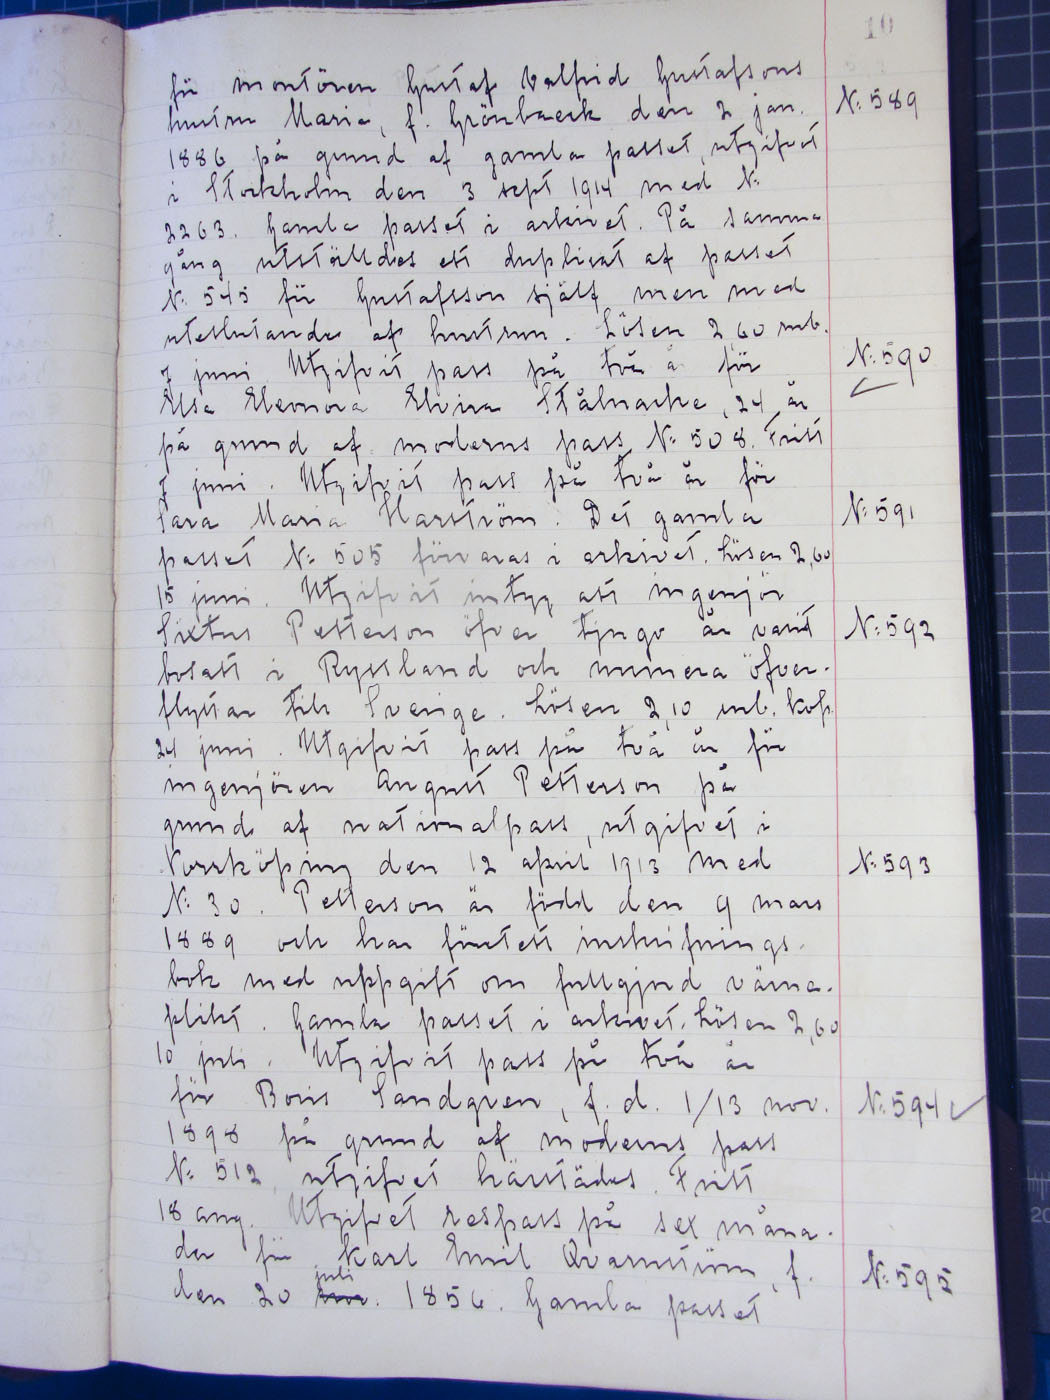 10
för montören Gustaf Valfrid Gustafsons
hustru Maria, f. Grönbaeck den 2 jan. N: 589
1886 på grund af gamla passet, utgifvet
i Stockholm den 3 sept 1914 med N:
2263. Gamla passet i arkivet. På samma
gång utställdes ett duplicat af passet
N: 545 för Gustafsson själf men med
uteslutande af hustrun. Lösen 2,60 rub.
7 juni Utgifvit pass på två å för N: 590
Elsa Eleonora Elvira Stålnacke, 24 år
på grund af moderns pass N: 508. Fritt
7 juni. Utgifvit pass på två år för
Sara Maria Harström. Det gamla N: 591
passet N: 505 förvaras i arkivet. Lösen 2,60
15 juni. Utgifvit intyg att ingenjör
Sixtus Petterson öfver tjugo år varit N: 592
bosatt i Ryssland och numera öfver-
flyttar till Sverige. Lösen 2,10 rub. kop.
24 juni. Utgifvit pass på två år för
ingenjören August Petterson på
grund af nationalpass, utgifvet i
Norrköping den 12 april 1913 med N: 593
N: 30. Petterson är född den 9 mars
1889 och har företett inskrifnings-
bok med uppgift om fullgjord värne-
plikt. Gamla passet i arkivet. Lösen 2,60
10 juli. Utgifvit pass på två år
för Boris Sandgren, f. d. 1/13 nov. N: 594
1898 på grund af moderns pass
N: 512, utgifvet härstädes. Fritt
18 aug. Utgifvet respass på sex måna-
der för Karl Emil Qvarnström, f. N: 595
den 20 juli. 1856. Gamla passet